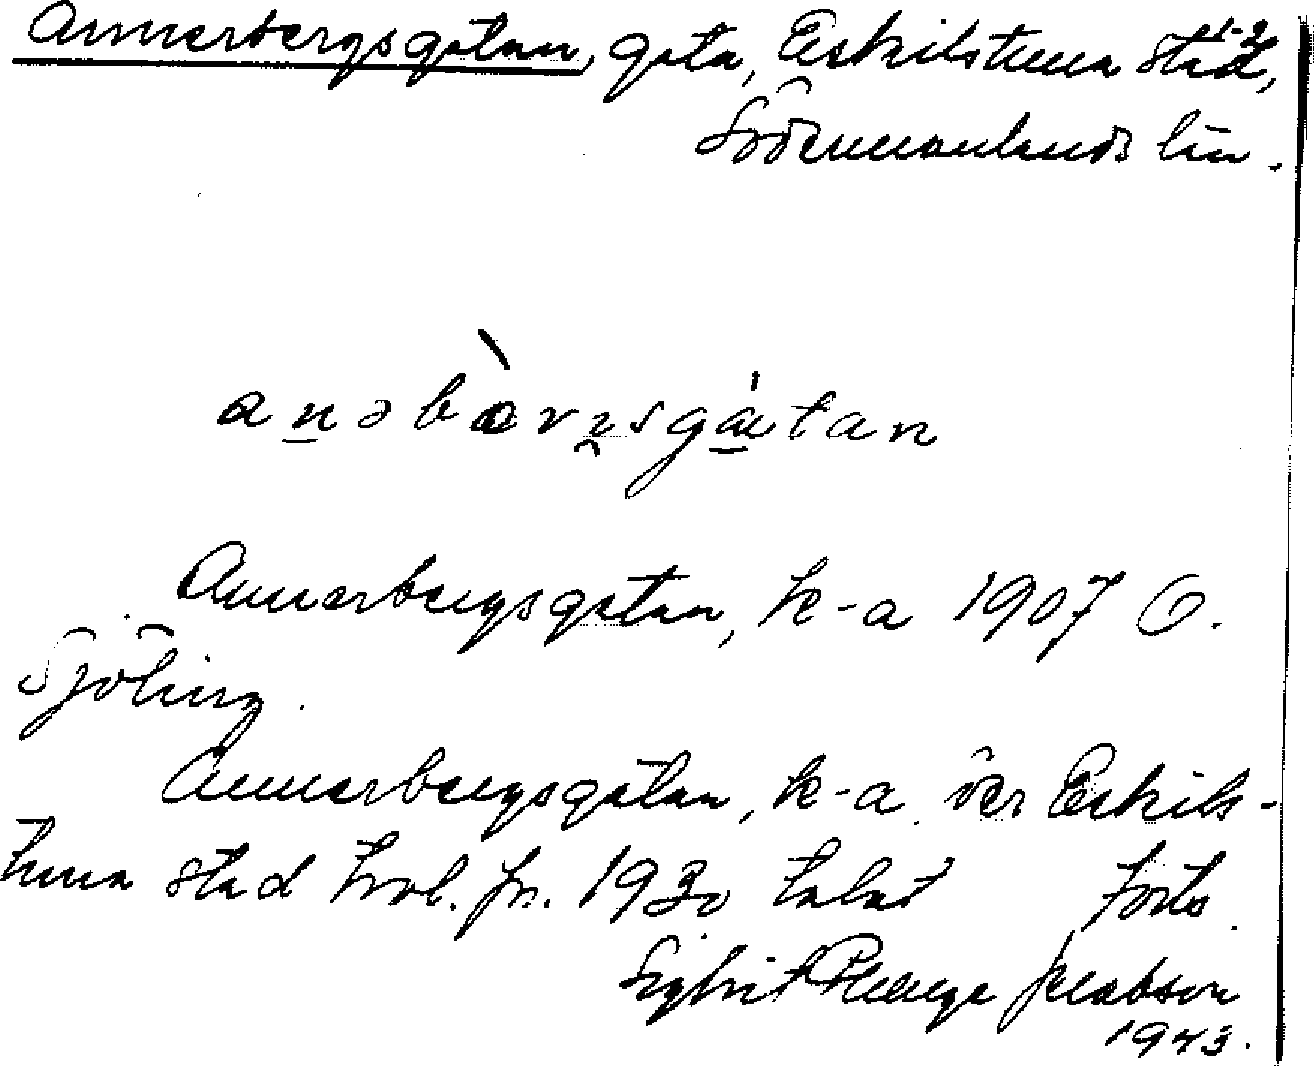 Annerbergsgatan, gata, Eskilstuna stad, 1-2
Södermanlands län.
anəbærgsgatan
Annerbergsgatan, k-a 1907 O.
Sjöling.
Annerbergsgatan, k-a över Eskils-
tuna stad trol. fr. 1930 talet forts.
Sigbrit Plenge Jacobson
1943.